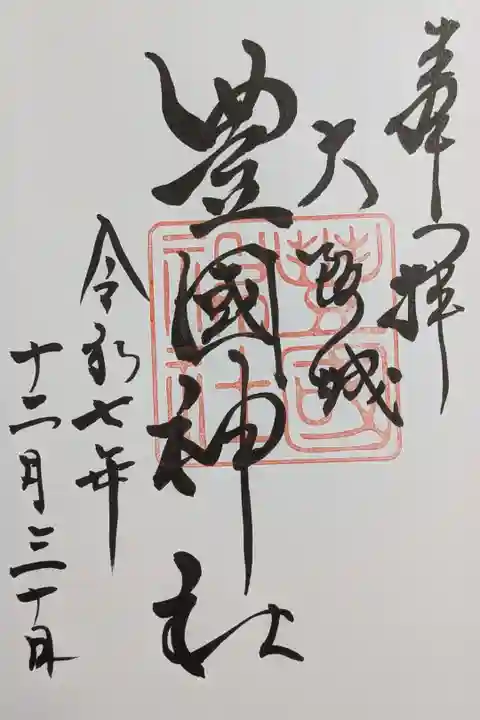 奉拝
大阪城
豊國神社
令和七年
十二月三十日
豊國神社